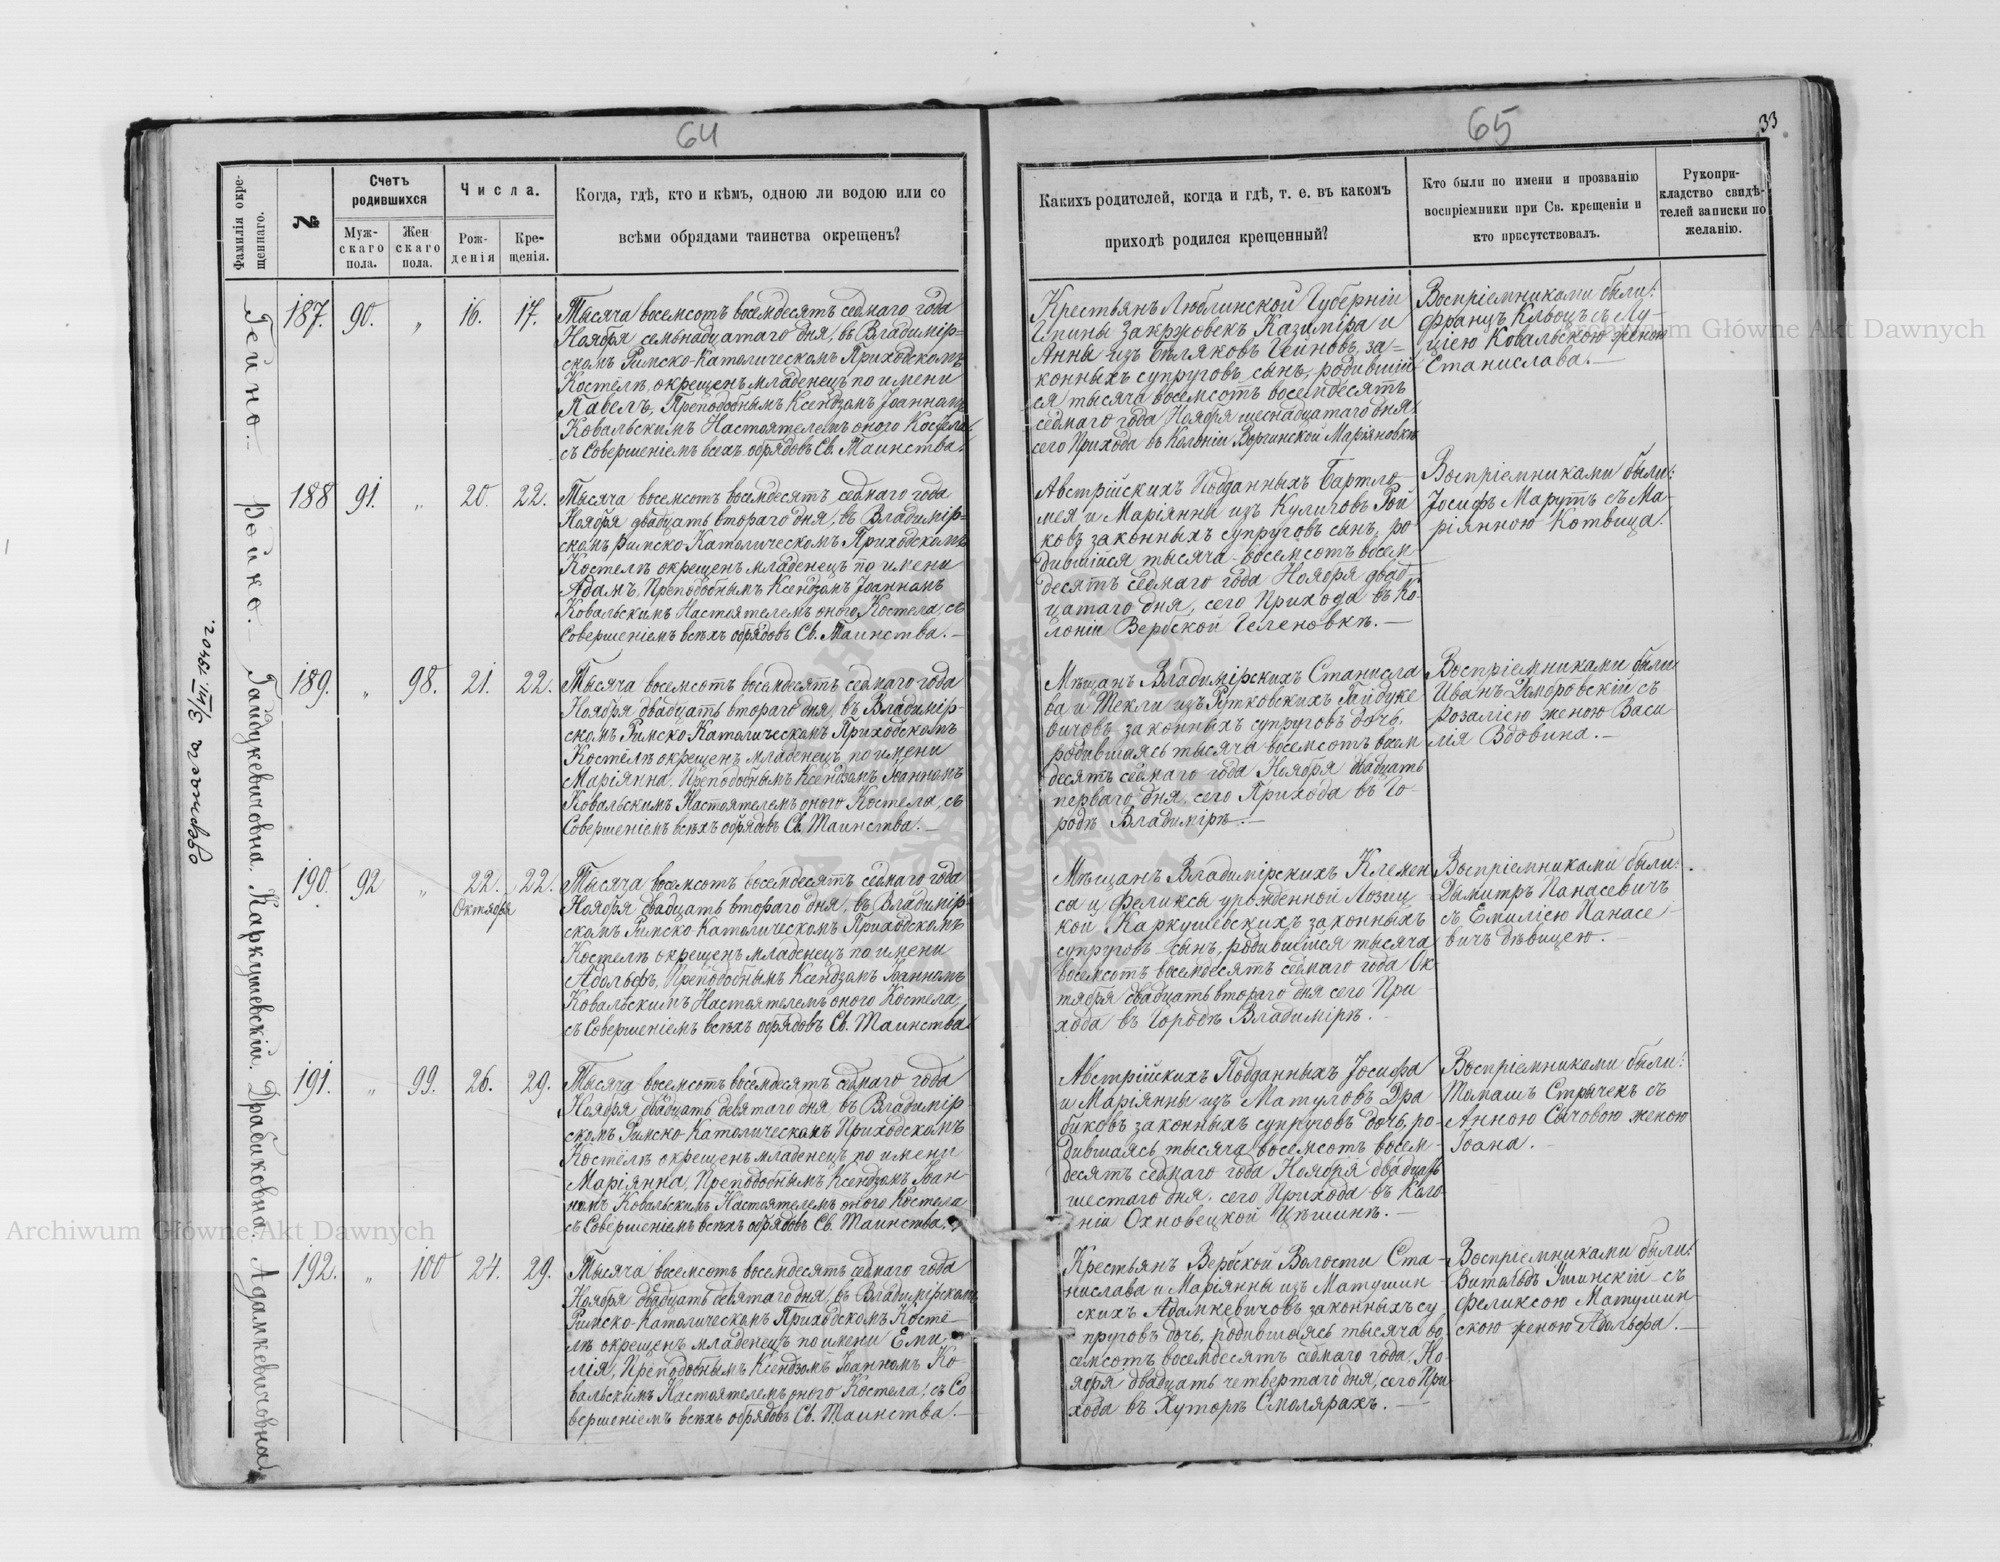 64
Фамилія окре-
щеннаго.
№
Счетъ
родившихся
Муж-
скаго
пола.
Жен
скаго
пола.
Числа.
Рож-
денія
Кре-
щенія.
Когда, гдѣ, кто и кѣмъ, одною ли водою или со
всѣми обрядами таинства окрещенъ?
Гейно.
187.
90.
„
16.
17.
Тысяча восемсотъ восемдесятъ седмаго года
Ноября семьнадцатаго дня, въ Владимір-
скомъ Римско-Католическомъ Приходскомъ
Костелѣ окрещенъ младенецъ по имени
Павелъ, Преподобнымъ Ксендзомъ Іоанномъ
Ковальскимъ Настоятелемъ оного Костела,
съ Совершеніемъ всехъ обрядовъ Св. Таинства.
Ройко.
188
91.
„
20.
22.
Тысяча восемсотъ восемдесятъ седмаго года
Ноября двадцать втораго дня, въ Владимір-
скомъ Римско-Католическомъ Приходскомъ
Костелѣ окрещенъ младенецъ по имени
Адамъ, Преподобнымъ Ксендзомъ Іоанномъ
Ковальскимъ Настоятелемъ оного Костела, съ
Совершеніемъ всѣхъ обрядовъ Св. Таинства.—
Гайдукевичовна.
189.
„
98.
21.
22.
Тысяча восемсотъ восемдесятъ седмаго года
Ноября двадцать втораго дня, въ Владимір-
скомъ Римско-Католическомъ Приходскомъ
Костелѣ окрещенъ младенецъ по имени
Маріянна, Преподобнымъ Ксендзомъ Іоанномъ
Ковальскимъ Настоятелемъ оного Костела, съ
Совершеніемъ всѣхъ обрядовъ Св. Таинства.—
Каркушевскій.
190.
92
„
22.
Октября
22.
Тысяча восемсотъ восемдесятъ седмаго года
Ноября двадцать втораго дня, въ Владимір-
скомъ Римско-Католическомъ Приходскомъ
Костелѣ окрещенъ младенецъ по имени
Адольфъ, Преподобнымъ Ксендзомъ Іоанномъ
Ковальскимъ Настоятелемъ оного Костела,
съ Совершеніемъ всѣхъ обрядовъ Св. Таинства.
Драбиковна.
191.
„
99.
26.
29.
Тысяча восемсотъ восемдесятъ седмаго года
Ноября двадцать девятаго дня, въ Владимір-
скомъ Римско-Католическомъ Приходскомъ
Костелѣ окрещенъ младенецъ по имени
Маріянна, Преподобнымъ Ксендзомъ Іоан-
номъ Ковальскимъ Настоятелемъ оного Костела
съ Совершеніемъ всѣхъ обрядовъ Св. Таинства.
Адамкевичовна
192.
„
100
24.
29.
Тысяча восемсотъ восемдесятъ седмаго года
Ноября двадцать девятаго дня, въ Владимірскомъ
Римско-Католическомъ Приходскомъ Косте
лѣ окрещенъ младенецъ по имени Еми
лія, Преподобнымъ Ксендзомъ Іоанномъ Ко-
вальскимъ Настоятелемъ оного Костела, съ Со
вершеніемъ всѣхъ обрядовъ Св. Таинства.—
3/VII. 1940 г.
65
33
Какихъ родителей, когда и гдѣ, т. е. въ какомъ
приходѣ родился крещенный?
Кто были по имени и прозванію
воспріемники при Св. крещеніи и
кто присутствовалъ.
Рукопри-
кладство свидѣ-
телей записки по
желанію.
Крестьянъ Люблинской Губерніи
Гмины Закржовекъ Казиміра и
Анны изъ Бѣляковъ Гейновъ, за-
конныхъ супруговъ сынъ, родившій
ся тысяча восемсотъ восемдесятъ
седмаго года Ноября шеснадцатаго дня,
сего Прихода въ Колоніи Воргинской Маріяновкѣ
Воспріемниками были:
Францъ Клюцъ съ Лу-
ціею Ковальскою женою
Станислава.—
Австрійскихъ Подданныхъ Бартло-
мея и Маріянны изъ Кулиговъ Рой
ковъ законныхъ супруговъ сынъ, ро-
дившійся тысяча восемсотъ восем
десятъ седмаго года Ноября двад-
цатаго дня, сего Прихода въ Ко-
лоніи Вербской Геленовкѣ.—
Воспріемниками были:
Іосифъ Марутъ съ Ма-
ріянною Котвица.
Мѣщанъ Владимірскихъ Станисла
ва и Текли изъ Рутковскихъ Гайдуке
вичовъ законныхъ супруговъ дочь,
родившаясь тысяча восемсотъ восем
десятъ седмаго года Ноября двадцать
перваго дня, сего Прихода въ Го-
родѣ Владимірѣ.—
Воспріемниками были
Иванъ Домбровскій съ
Розаліею женою Васи
мя Вдовина.—
Мѣщанъ Владимірскихъ Клемен
са и Феликсы урожденной Лозиц
кой Каркушевскихъ законныхъ
супруговъ сынъ, родившійся тысяча
восемсотъ восемдесятъ седмаго года Ок-
тября двадцать втораго дня сего При
хода въ Городѣ Владимірѣ.—
Воспріемниками были:
Дымитръ Панасевичъ
съ Емиліею Панасе-
вичъ дѣвицею.—
Австрійскихъ Подданныхъ Іосифа
и Маріянны изъ Матуловъ Дра
биковъ законныхъ супруговъ дочь, ро-
дившаясь тысяча восемсотъ восем-
десятъ седмаго года Ноября двадцать
шестаго дня, сего Прихода въ Коло-
ніи Охновецкой Цѣшинѣ.—
Воспріемниками были:
Томашъ Стрычекъ съ
Анною Сычовою женою
Іоана.
Крестьянъ Вербской Волости Ста-
нислава и Маріянны изъ Матушин
скихъ Адамкевичовъ законныхъ су
пруговъ дочь, родившаясь тысяча во
семсотъ восемдесятъ седмаго года, Но-
ября двадцать четвертаго дня, сего При
хода въ Хуторѣ Смолярахъ.—
Воспріемниками были:
Витольдъ Ушинскій съ
Феликсою Матушин
скою женою Адольфа.—
Archiwum Główne Akt Dawnych
Archiwum Główne Akt Dawnych